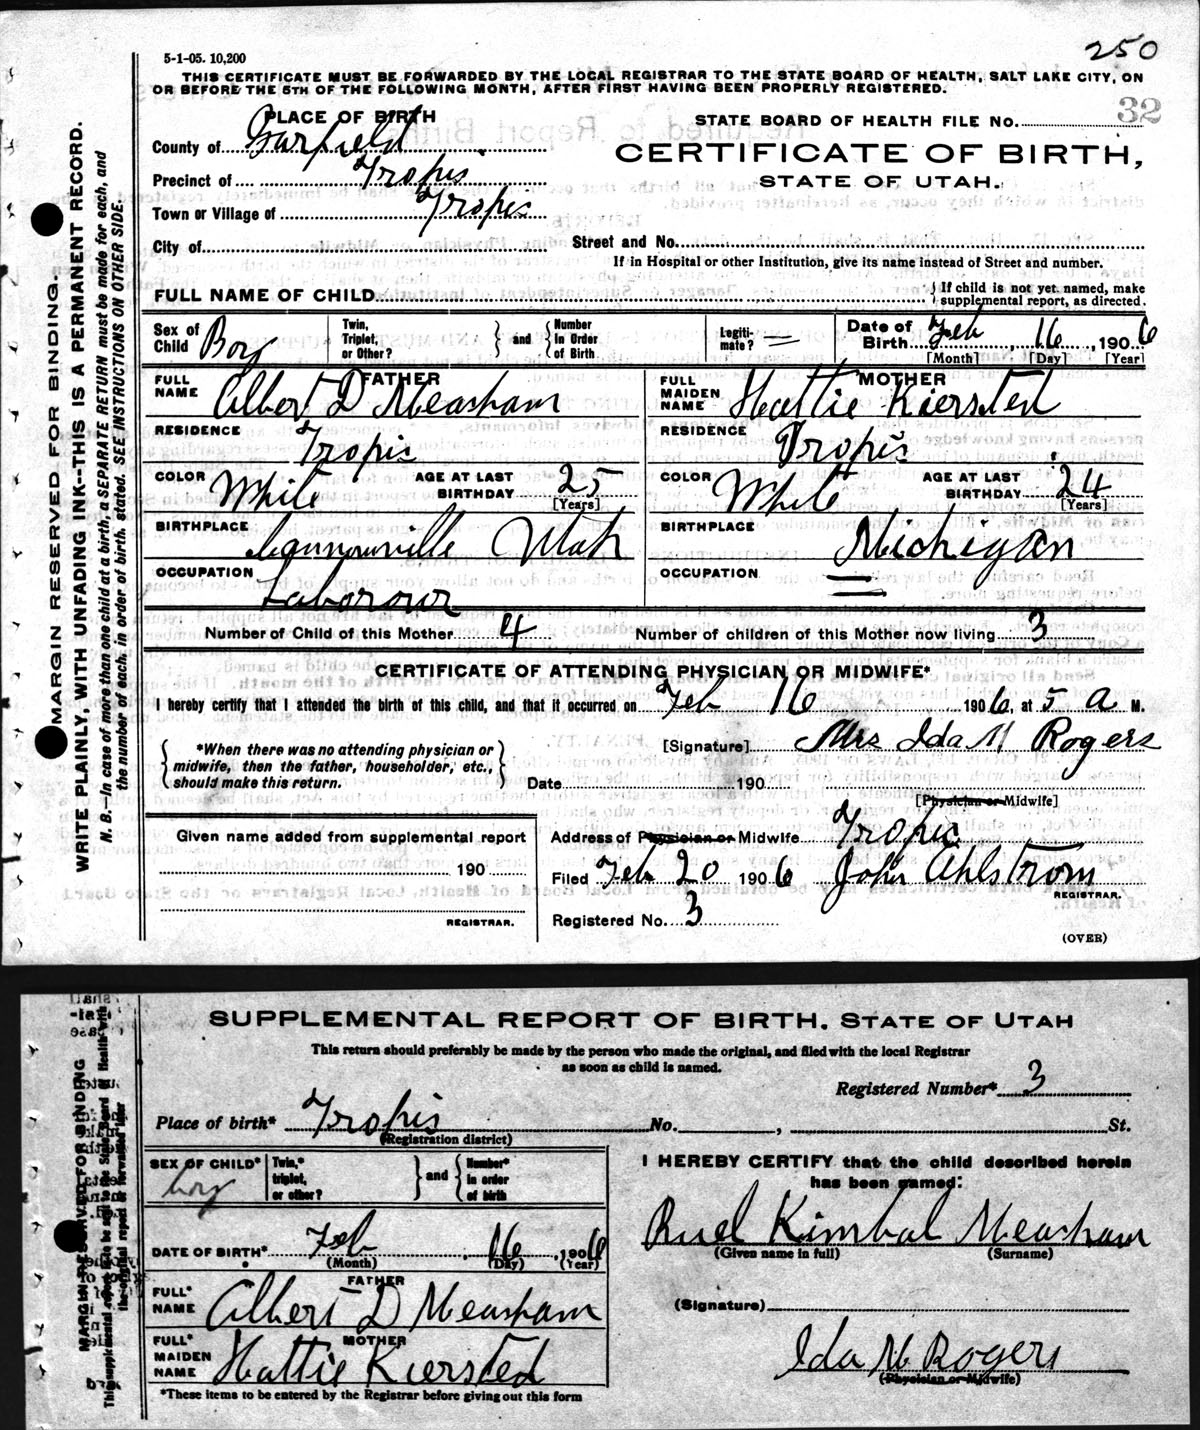 250
5-1-05. 10,200
THIS CERTIFICATE MUST BE FORWARDED BY THE LOCAL REGISTRAR TO THE STATE BOARD OF HEALTH, SALT LAKE CITY, ON
OR BEFORE THE 5TH OF THE FOLLOWING MONTH, AFTER FIRST HAVING BEEN PROPERLY REGISTERED.
32
PLACE OF BIRTH
STATE BOARD OF HEALTH FILE NO.
County of Garfield
CERTIFICATE OF BIRTH,
Precinct of Tropic
STATE OF UTAH.
Town or Village of Tropic
City of
Street and No.
If in Hospital or other Institution, give its name instead of Street and number.
FULL NAME OF CHILD
If child is not yet named, make
supplemental report, as directed.
Sex of Child Boy
Twin, Triplet, or Other?
and
Number In Order of Birth
Legiti-mate? =
Date of Birth Feb, 16, 1906
[Month] [Day] [Year]
FATHER
FULL NAME Albert D Measham
RESIDENCE Tropic
COLOR White
AGE AT LAST BIRTHDAY 25
[Years]
BIRTHPLACE Cannonville Utah
OCCUPATION Laborour
MOTHER
FULL MAIDEN NAME Hattie Kiersted
RESIDENCE Tropic
COLOR White
AGE AT LAST BIRTHDAY 24
[Years]
BIRTHPLACE Michigan
OCCUPATION
Number of Child of this Mother 4
Number of children of this Mother now living 3
CERTIFICATE OF ATTENDING PHYSICIAN OR MIDWIFE*
I hereby certify that I attended the birth of this child, and that it occurred on Feb 16 1906, at 5 a M.
*When there was no attending physician or
midwife, then the father, householder, etc.,
should make this return.
[Signature] Mrs Ida M Rogers
Date 190
[Physician or Midwife]
Given name added from supplemental report
190
REGISTRAR.
Address of Physician or Midwife Tropic
Filed Feb 20 1906 John Ahlstrom
REGISTRAR.
Registered No. 3
(OVER)
MARGIN RESERVED FOR BINDING.
WRITE PLAINLY, WITH UNFADING INK--THIS IS A PERMANENT RECORD.
N. B.—In case of more than one child at a birth, a SEPARATE RETURN must be made for each, and
the number of each, in order of birth, stated. SEE INSTRUCTIONS ON OTHER SIDE.
SUPPLEMENTAL REPORT OF BIRTH. STATE OF UTAH
This return should preferably be made by the person who made the original, and filed with the local Registrar
as soon as child is named.
Registered Number* 3
Place of birth* Tropic No. , St.
(Registration district)
SEX OF CHILD* boy
Twin,* triplet, or other?
and
Number* In order of birth
DATE OF BIRTH* Feb, 16, 1906
(Month) (Day) (Year)
FATHER
FULL* NAME Albert D Measham
MOTHER
FULL* MAIDEN NAME Hattie Kiersted
*These items to be entered by the Registrar before giving out this form
I HEREBY CERTIFY that the child described herein
has been named:
Ruel Kimbal Measham
(Given name in full) (Surname)
(Signature)
Ida M Rogers
(Physician or Midwife)
MARGIN RESERVED FOR BINDING